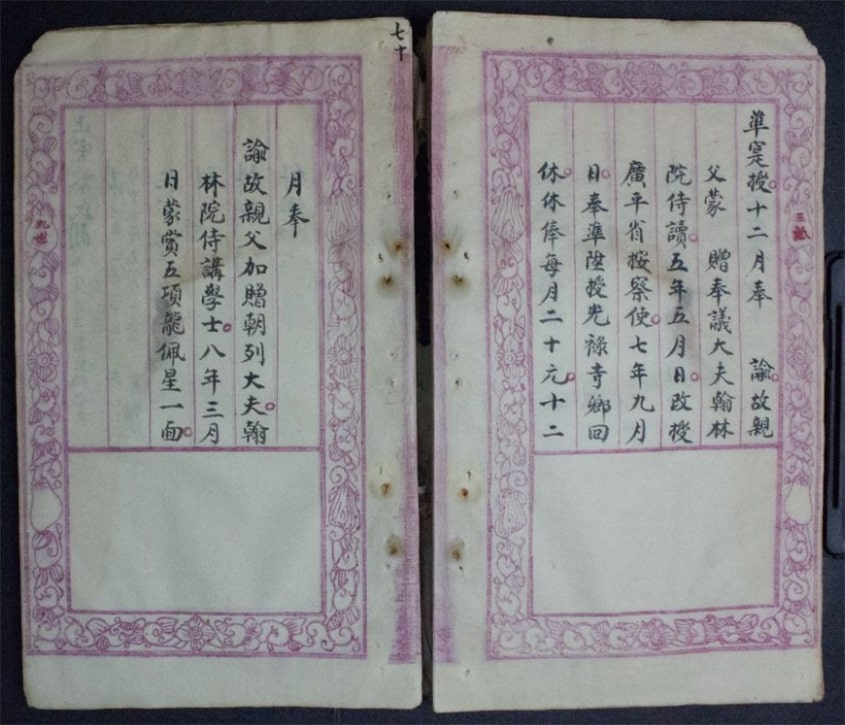 準寔授十二月奉 諭故親
父蒙 贈奉議大夫翰林
院侍讀五年五月日改授
廣平省按察使七年九月
日奉準陞授光禄寺鄉回
休休俸每月二十元十二
七十
月奉
諭故親父加贈朝列大夫翰
林院侍講學士八年三月
日蒙賞五項龍佩星一面
九世